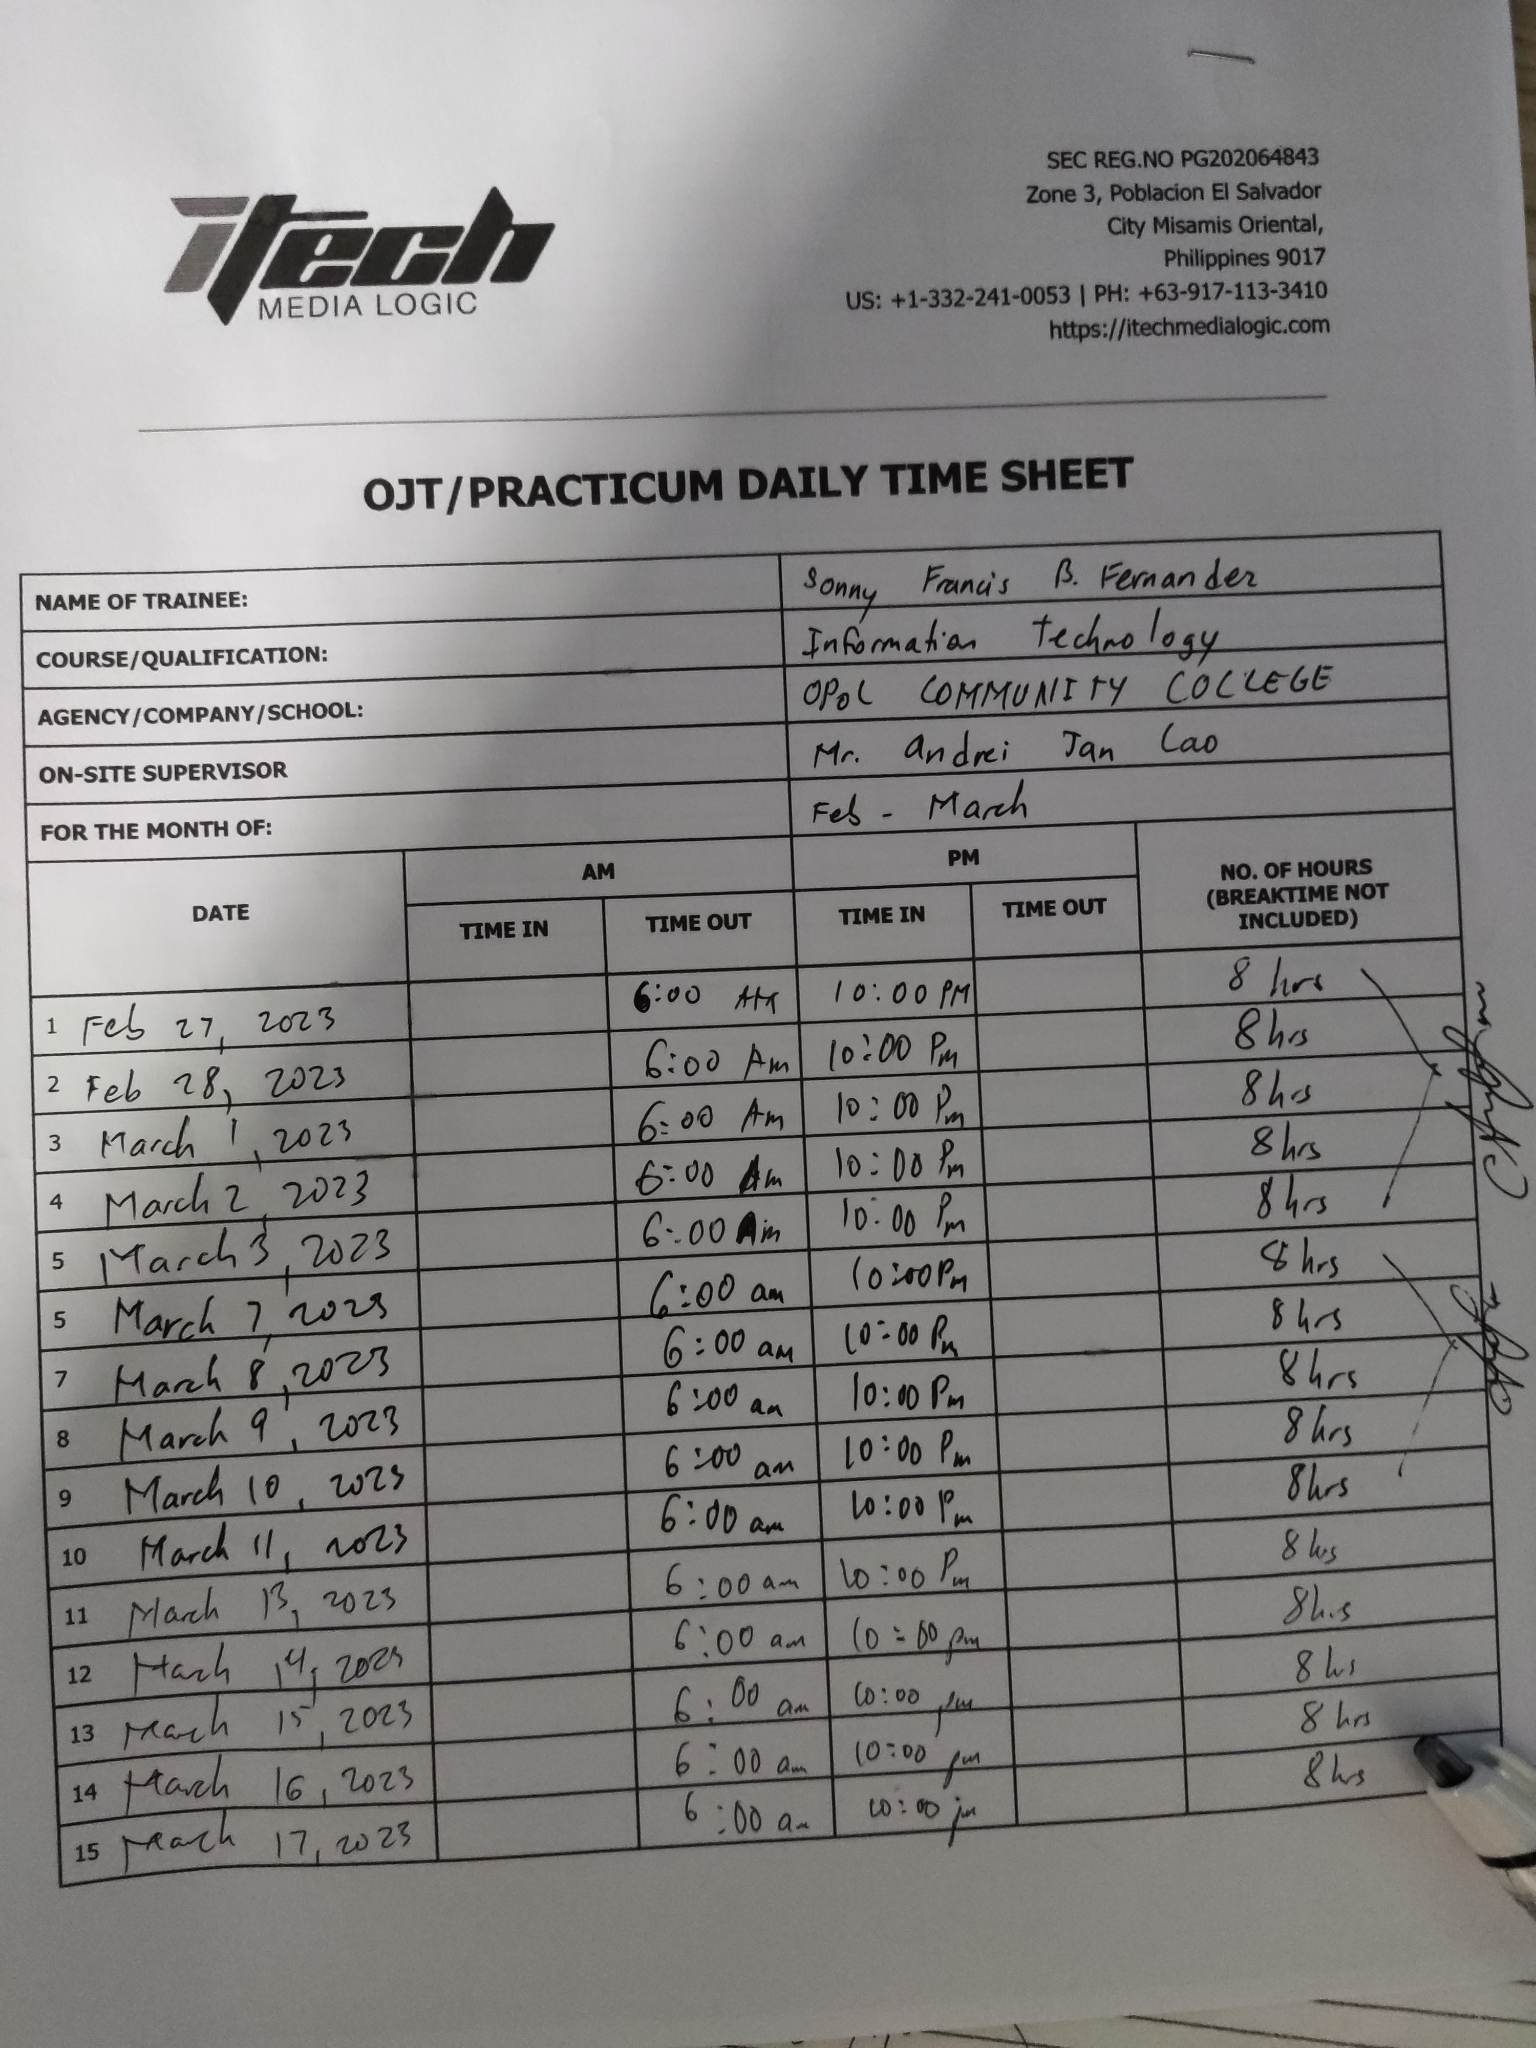 iTech
MEDIA LOGIC
SEC REG.NO PG202064843
Zone 3, Poblacion El Salvador
City Misamis Oriental,
Philippines 9017
US: +1-332-241-0053 | PH: +63-917-113-3410
https://itechmedialogic.com
OJT/PRACTICUM DAILY TIME SHEET
NAME OF TRAINEE: Sonny Francis B. Fernandez
COURSE/QUALIFICATION: Information Technology
AGENCY/COMPANY/SCHOOL: OPOL COMMUNITY COLLEGE
ON-SITE SUPERVISOR Mr. Andrei Jan Cao
FOR THE MONTH OF: Feb - March
DATE AM PM NO. OF HOURS
(BREAKTIME NOT
INCLUDED)
TIME IN TIME OUT TIME IN TIME OUT
1 Feb 27, 2023 6:00 AM 10:00 PM 8 hrs
2 Feb 28, 2023 6:00 Am 10:00 Pm 8hrs
3 March 1, 2023 6:00 Am 10:00 Pm 8hrs
4 March 2, 2023 6:00 Am 10:00 Pm 8hrs
5 March 3, 2023 6:00 Am 10:00 Pm 8hrs
5 March 7, 2023 6:00 am 10:00 Pm 8 hrs
7 March 8, 2023 6:00 am 10:00 Pm 8hrs
8 March 9, 2023 6:00 am 10:00 Pm 8hrs
9 March 10, 2023 6:00 am 10:00 Pm 8hrs
10 March 11, 2023 6:00 am 10:00 Pm 8hrs
11 March 13, 2023 6:00 am 10:00 Pm 8 hrs
12 March 14, 2023 6:00 am 10:00 pm 8hrs
13 March 15, 2023 6:00 am 10:00 pm 8 hrs
14 March 16, 2023 6:00 am 10:00 pm 8 hrs
15 March 17, 2023 6:00 am 10:00 pm 8 hrs